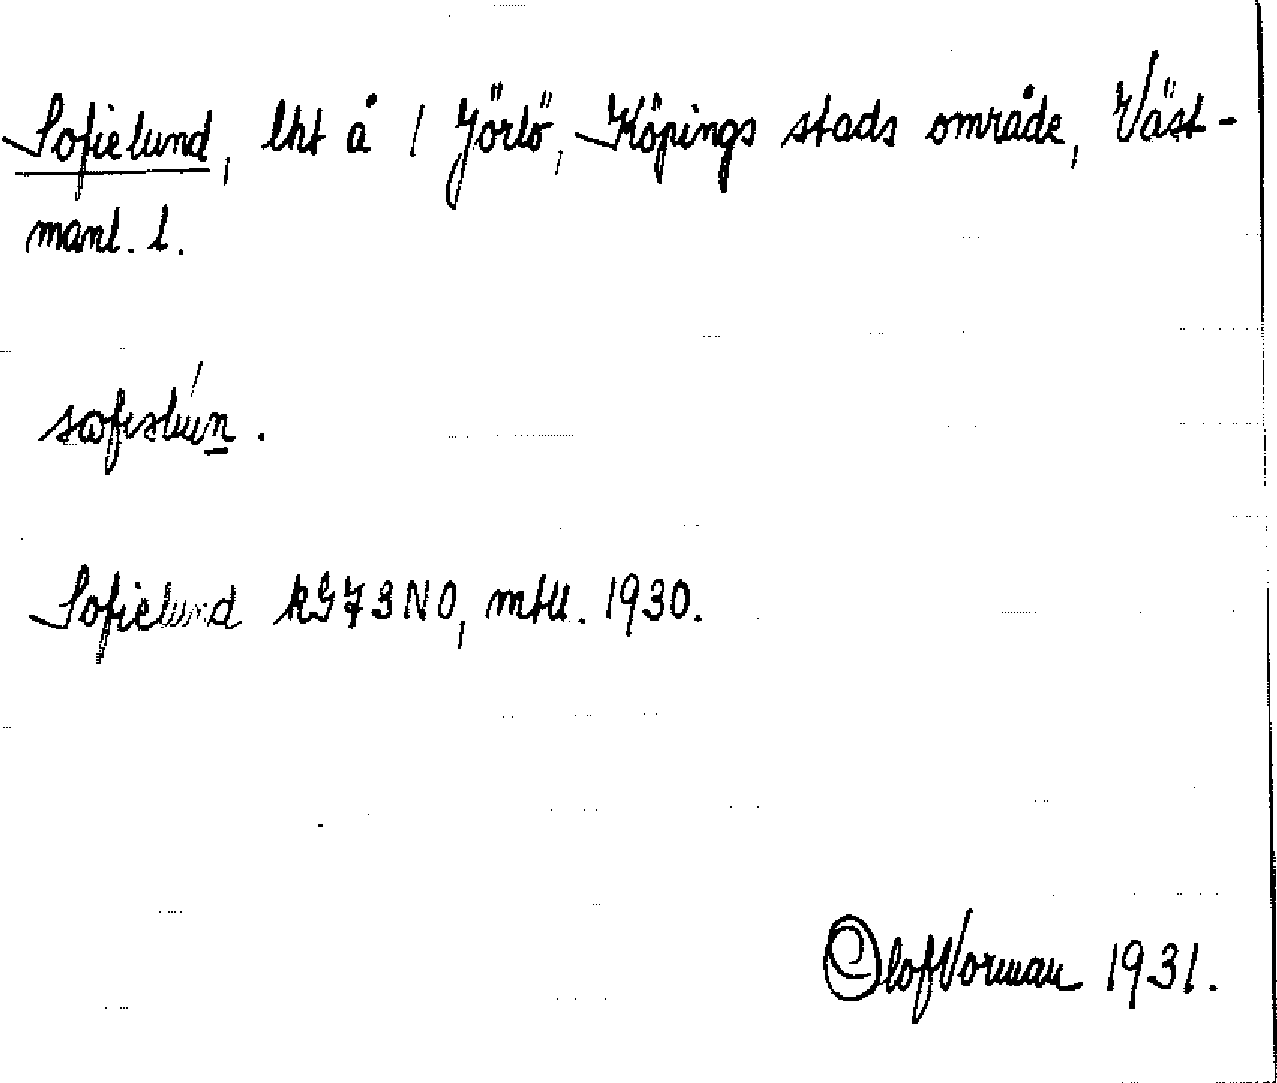 Sofielund, lht å 1 Jörlö, Köpings stads område, Väst-
manl. l.
Sofielund kG73NO, mtll. 1930.
Olof Vorman 1931.